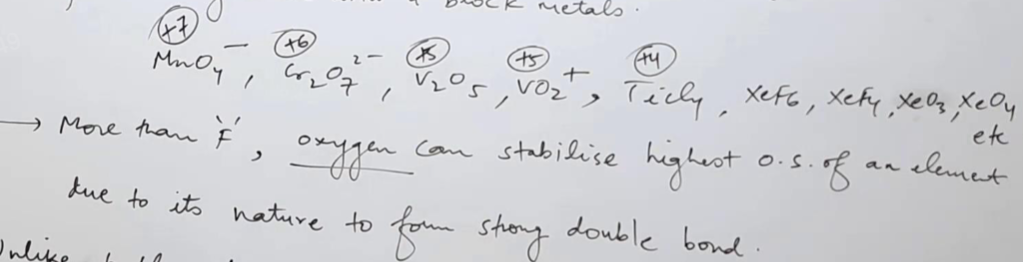 block metals.
+7 +6 +5 +5 +4
MnO₄⁻, Cr₂O₇²⁻, V₂O₅, VO₂⁺, TiCl₄, XeF6, XeF4, XeO3, XeO4
etc
→ More than 'F', oxygen can stabilise highest o.s. of an element
due to its nature to form strong double bond.